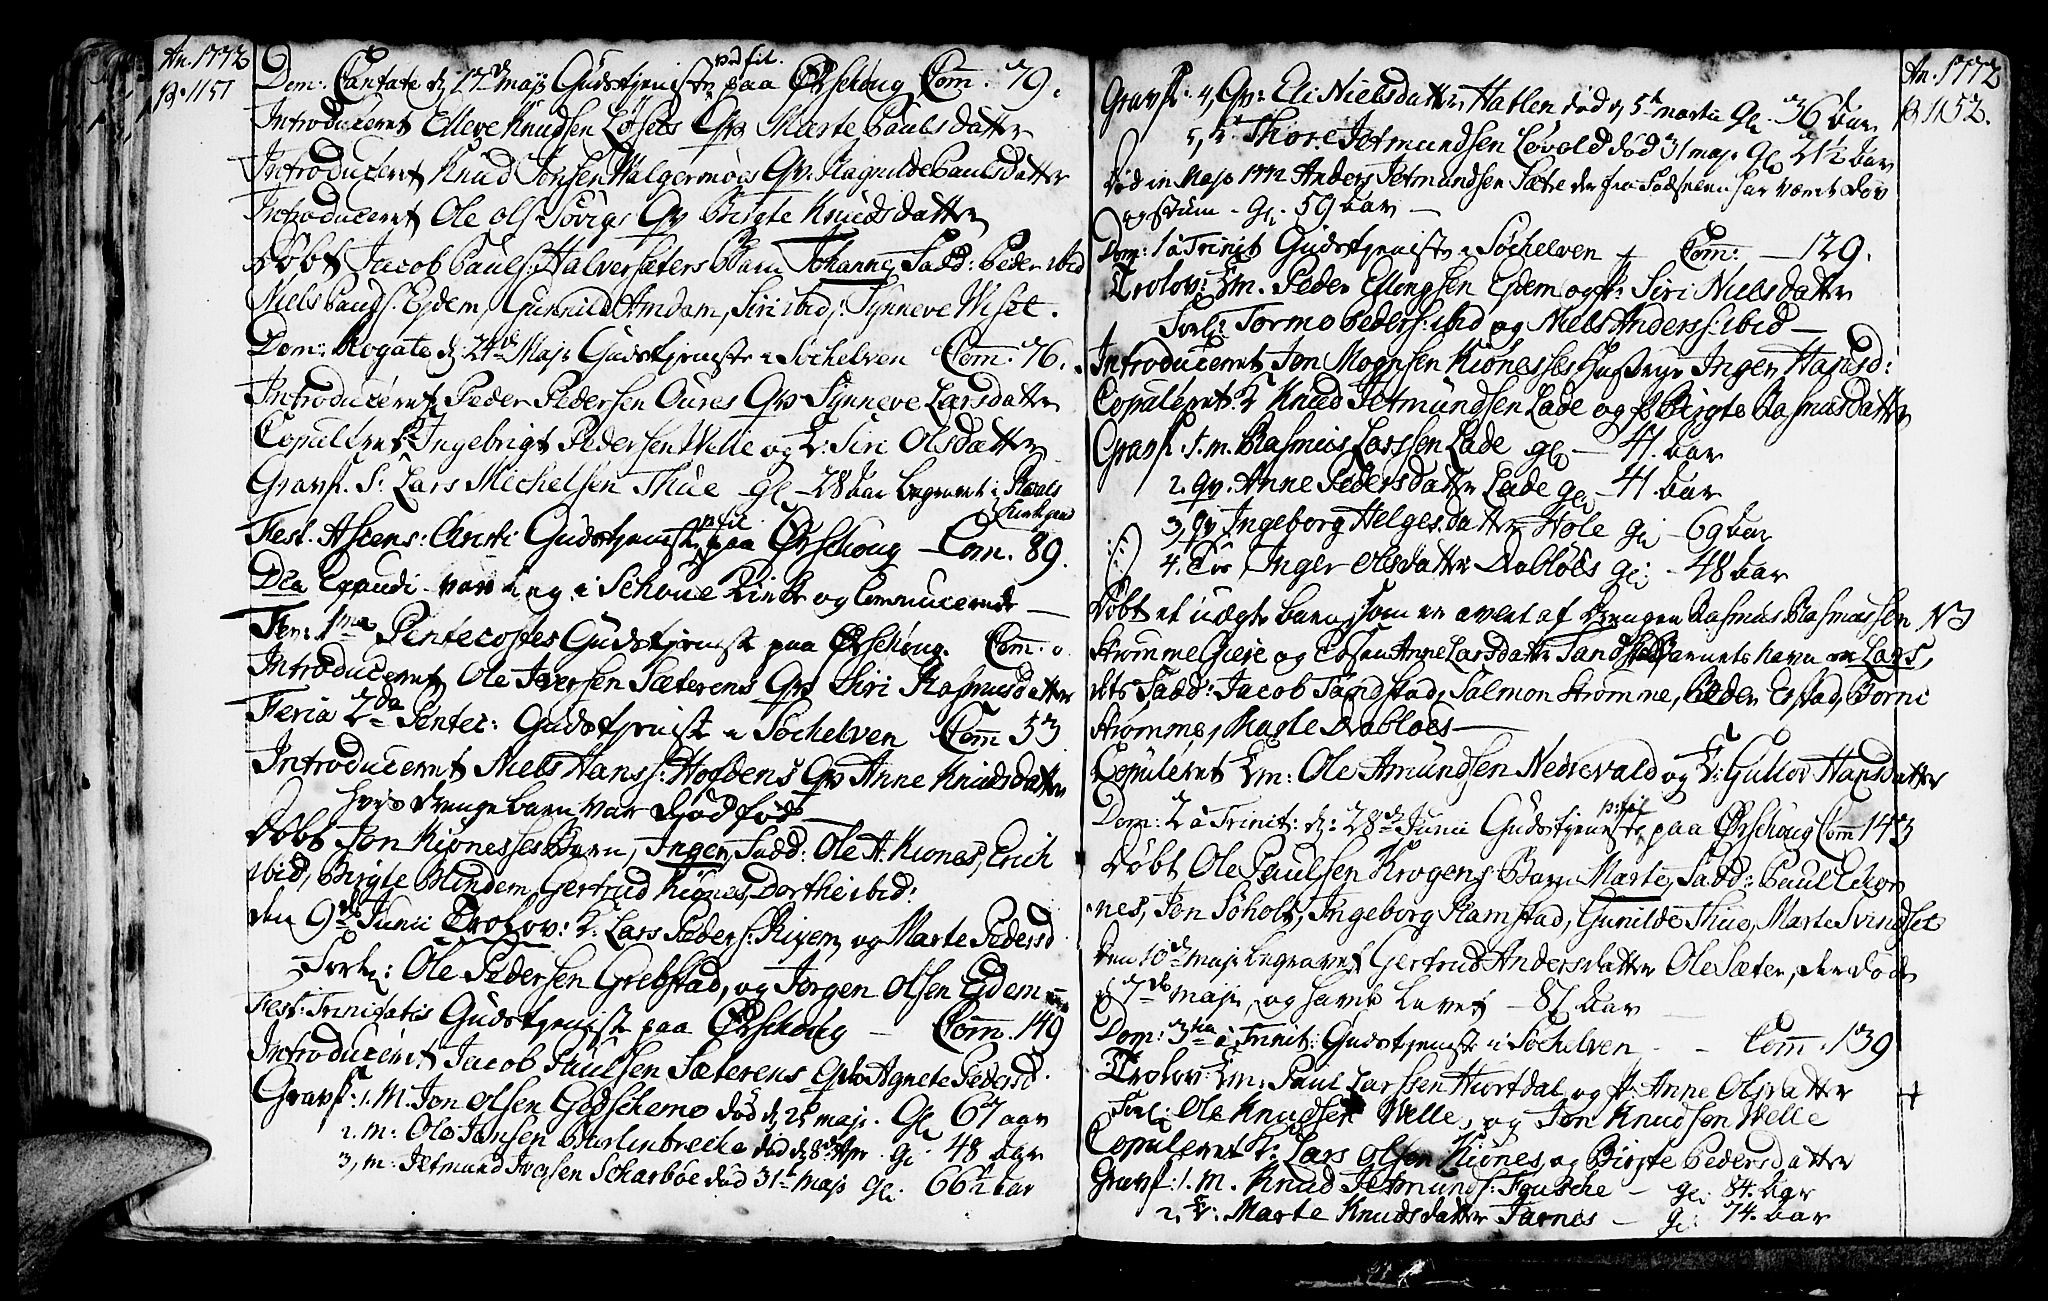 An. 1772
p. 1151
Dom: Cantate d. 17de maji Gudstjeniste paa Ørschoug Com. 79.
Introduceret Elleve Knudsen Løsets Qv Marte Paulsdatter
Introduceret Knud Jonsen Walgermoes Qv. Ragnilde Paulsdatter
Introduceret Ole Ols Søvigs Qv Birgte Knudsdatter
Døbt Jacob Pauls: Halversæters Barn Johanne, Fadd: Peder ibid
Niels Pauls. Ejdem, Gunnild Amdam, Siri ibid, Synneve Wiset.
Dom: Rogate d. 24de Maji Gudstjeniste i Søchelven Com. 76.
Introduceret Peder Pedersen Oures Qv Synneve Larsdatter
Copuleret Ingebrigt Pedersen Welle og Siri Olsdatter
Gravf. S. Lars Michelsen Thue gl 28 Aar begravet i
Kirkegaard
Fest. Ascens: Christi Gudstjeniste paa Ørschoug Com. 89.
Dca Exaudi var ieg i Schoue Kirke og Communicerede
Fer: 1ma Pentecostes Gudstjeniste paa Ørschoug. Com: 0
Introduceret Ole Iversen Sæterens Qv Siri Rasmusdatter
Feria 2da Pentec: Gudstjeniste i Søchelven Com 53
Introduceret Niels Hans: Hofdens Qv Anne Knudsdatter
hvis drengebarn var dødfød
Døbt Jon Kionesses Barn, Inger, Fadd: Ole A. Kiones, Erich
ibid, Birgte Blindem, Gertrud Kiones, Dorthe ibid:
den 9de Junii Trolov: Lars Peders: og Marte Pedersd
Forl: Ole Pedersen Grebstad, og Jørgen Olsen Ejdem
Fest: Trinitatis Gudstjeniste paa Ørschoug Com. 149
Introduceret Jacob Paulsen Sæterens Qv Agnete Pedersd
Gravf: 1. M. Jon Olsen Giæschemo død d. 25 maji. Gl. 67 aar
2. m: Ole Jensen død d. 8de gl. 48 Aar
3, m: Jetmund Iversen Scharboe død 31te maji gl. 66½ aar
An. 1772
p. 1152.
Gravf: 4, Qv: Eli Nielsdatter Hatlen død d 5te martii gl. 36 Aar
5, Thore Jetmundsen Løvold død 31 maji gl 21½ Aar
Død in Majo 1772 Anders Jetmundsen Sætre der fra Fødselen har været døv
og stum - gl. 59 Aar
Dom: 1 à Trinit Gudstjeniste i Søchelven Com: 129.
Trolov: Em. Peder Ellingsen Ejdem og p: Siri Nielsdatter
Forl: Tormo Peders: ibid og Niels Anders: ibid
Introduceret Jon Mognsen Kionesses Hustrue Inger Hansd:
Copuleret Knud Jetmundsen Lade og p Birgte Rasmusdatter
Gravf 1. m. Rasmus Larssen Lade gl 41. aar
2. qv. Anne Pedersdatter Lade gl 41 Aar
3, qv Ingeborg Helgesdatter Hole gl. 69 Aar
4. Inger Olsdatter Dabloes gl. 48 Aar
Døbt et uægte barn, som er avlet af drengen Rasmus Rasmussen NB
Strømmegieie og Tøsen Anne Larsdatter Tandstad Barnets navn er Lars,
dets Fadd: Jacob Tandstad, Salmon Strømme, Peder Erstad, Børni
Strømme, Marte Dabloes
Copuleret Em: Ole Amundsen Nedrevald og Gullov Hansdatter
Dom: 2 à Trinit: d: 28de Junii Gudstjeniste paa Ørschoug Com 143
Døbt Ole Paulsen Krogens Barn Marte, Fadd: Paul
nes, Jon Søholt, Ingeborg Ramstad, Gunilde Thue, Marte Svindset
den 10de maji begravet Gertrud Andersdatter Ole Sæter, der døde
d 7de maji, og havde levet 87 Aar
Dom: 3tia à Trinit: Gudstjeniste i Søchelven Com. 139
Trolov: Em: Paul Larssen Hiortdal og p. Anne Olsdatter
Forl: Ole Knudsen Welle, og Jon Knudsen Welle
Copuleret Lars Olsen Kiones og Birgte Pedersdatter
Gravf: 1. M. Knud Jetmunds: gl: 84. Aar
2, Marte Knudsdatter Tarnes gl: 74. Aar